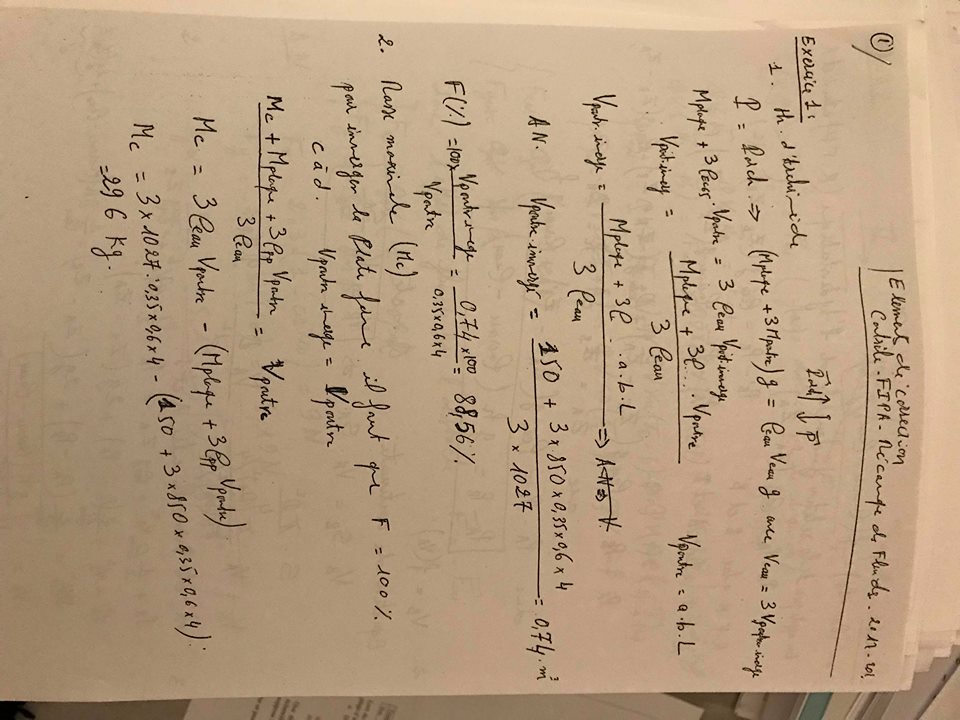 ①/
Element de correction
Contrôle - FIPA - Mécanique des Fluides - 2017-201
Exercice 1:
1. th. d'Archimède
P = Parch ⇒ (Mplage + 3Mpoutre) g = ρeau Veau g avec Veau = 3 Vpoutre imergé
Mplage + 3 ρ Vpoutre = 3 ρeau Vpoutimergé
Vpoutimerg = Mplaque + 3ρ... Vpoutre / 3 ρeau Vpoutre = a.b.L
Vpoutr. imerge = Mplage + 3ρ ... a.b.L / 3 ρeau ⇒ AN ⇒ V
AN. Vpoutre immergé = 150 + 3 x 850 x 0,35 x 0,6 x 4 / 3 x 1027 = 0,74 m³
F(%) = 100 x Vpoutre imerge / Vpoutre = 0,74 x 100 / 0,35 x 0,6 x 4 = 88,56 %
2. Masse maximale (Mc)
pour immerger la plate forme il faut que F = 100 %
c à d. Vpoutre imergé = Vpoutre
Mc + Mplage + 3 ρpp Vpoutre / 3 ρeau = Vpoutre
Mc = 3 ρeau Vpoutre - (Mplage + 3 ρpp Vpoutre)
Mc = 3 x 1027 . 0,35 x 0,6 x 4 - (150 + 3 x 850 x 0,35 x 0,6 x 4).
= 296 Kg.